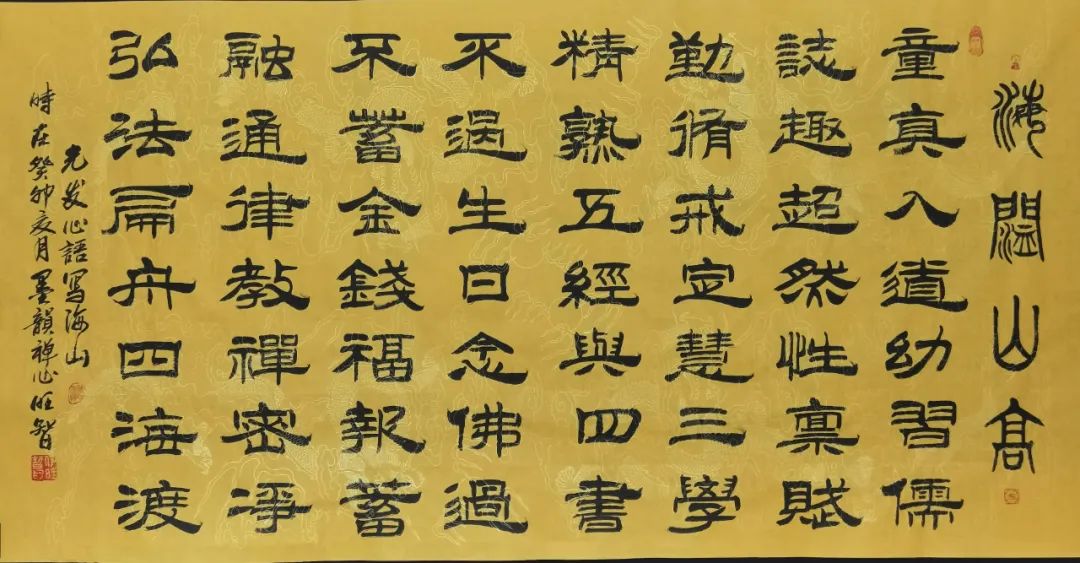 海闊山高
童真入道幼習儒
誌趣超然性稟賦
勤脩戒定慧三學
精熟五經與四書
不過生日念佛過
不蓄金錢福報蓄
融通律教禪密淨
弘法扁舟四海渡
允岁心語寫海山
時在癸卯亥月墨韻禅心旺智